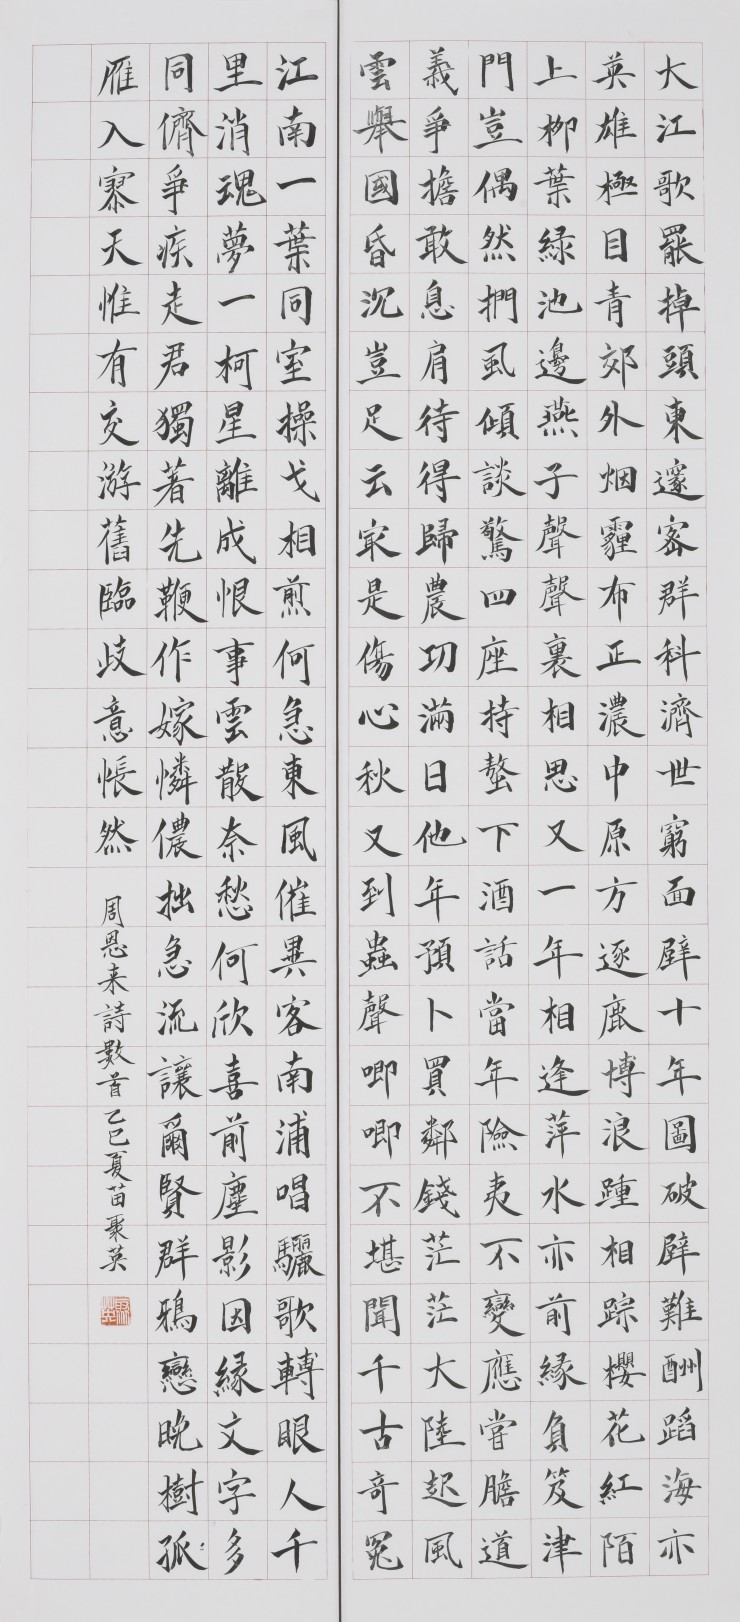 大江歌罷掉頭東邃密群科濟世窮面壁十年圖破壁難酬蹈海亦
英雄極目青郊外烟霾布正濃中原方逐鹿博浪踵相踪櫻花紅陌
上柳葉緑池邊燕子聲聲裏相思又一年相逢萍水亦前緣負笈津
門豈偶然捫虱傾談驚四座持螯下酒話當年險夷不變應嘗膽道
義爭擔敢息肩待得歸農功滿日他年預卜買鄰錢茫茫大陸起風
雲舉國昏沉豈足云㝡是傷心秋又到蟲聲唧唧不堪聞千古奇冤
江南一葉同室操戈相煎何急東風催異客南浦唱驪歌轉眼人千
里消魂夢一柯星離成恨事雲散奈愁何欣喜前塵影因緣文字多
同儕爭疾走君獨著先鞭作嫁憐儂拙急流讓爾賢群鴉戀晚樹孤
雁入寥天惟有交游舊臨歧意悵然
周恩来詩數首乙巳夏苗聚英